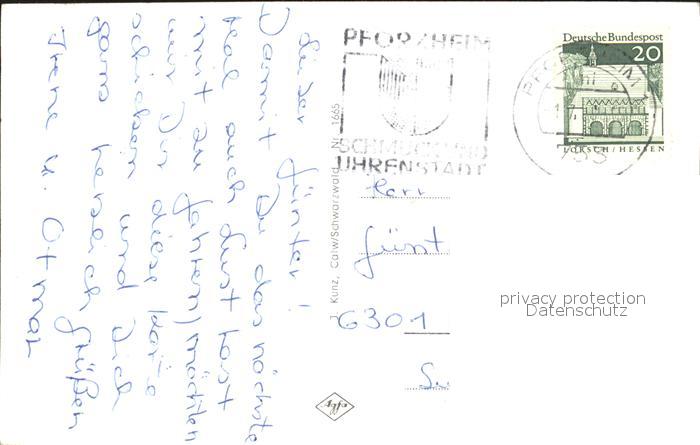 Lieber Günter!
Damit Du das nächste
Mal auch Lust hast
mit zu fahren, möchten
wir Dir diese Karte
schicken und Dich
ganz herzlich grüßen
Irene u. Otmar
J. Kunz, Calw/Schwarzwald, Nr. 1665
PFORZHEIM
SCHMUCK UND
UHRENSTADT
Deutsche Bundespost
20
LORSCH/HESSEN
PFORZHEIM
753
Herr
Günt
6301
privacy protection
Datenschutz